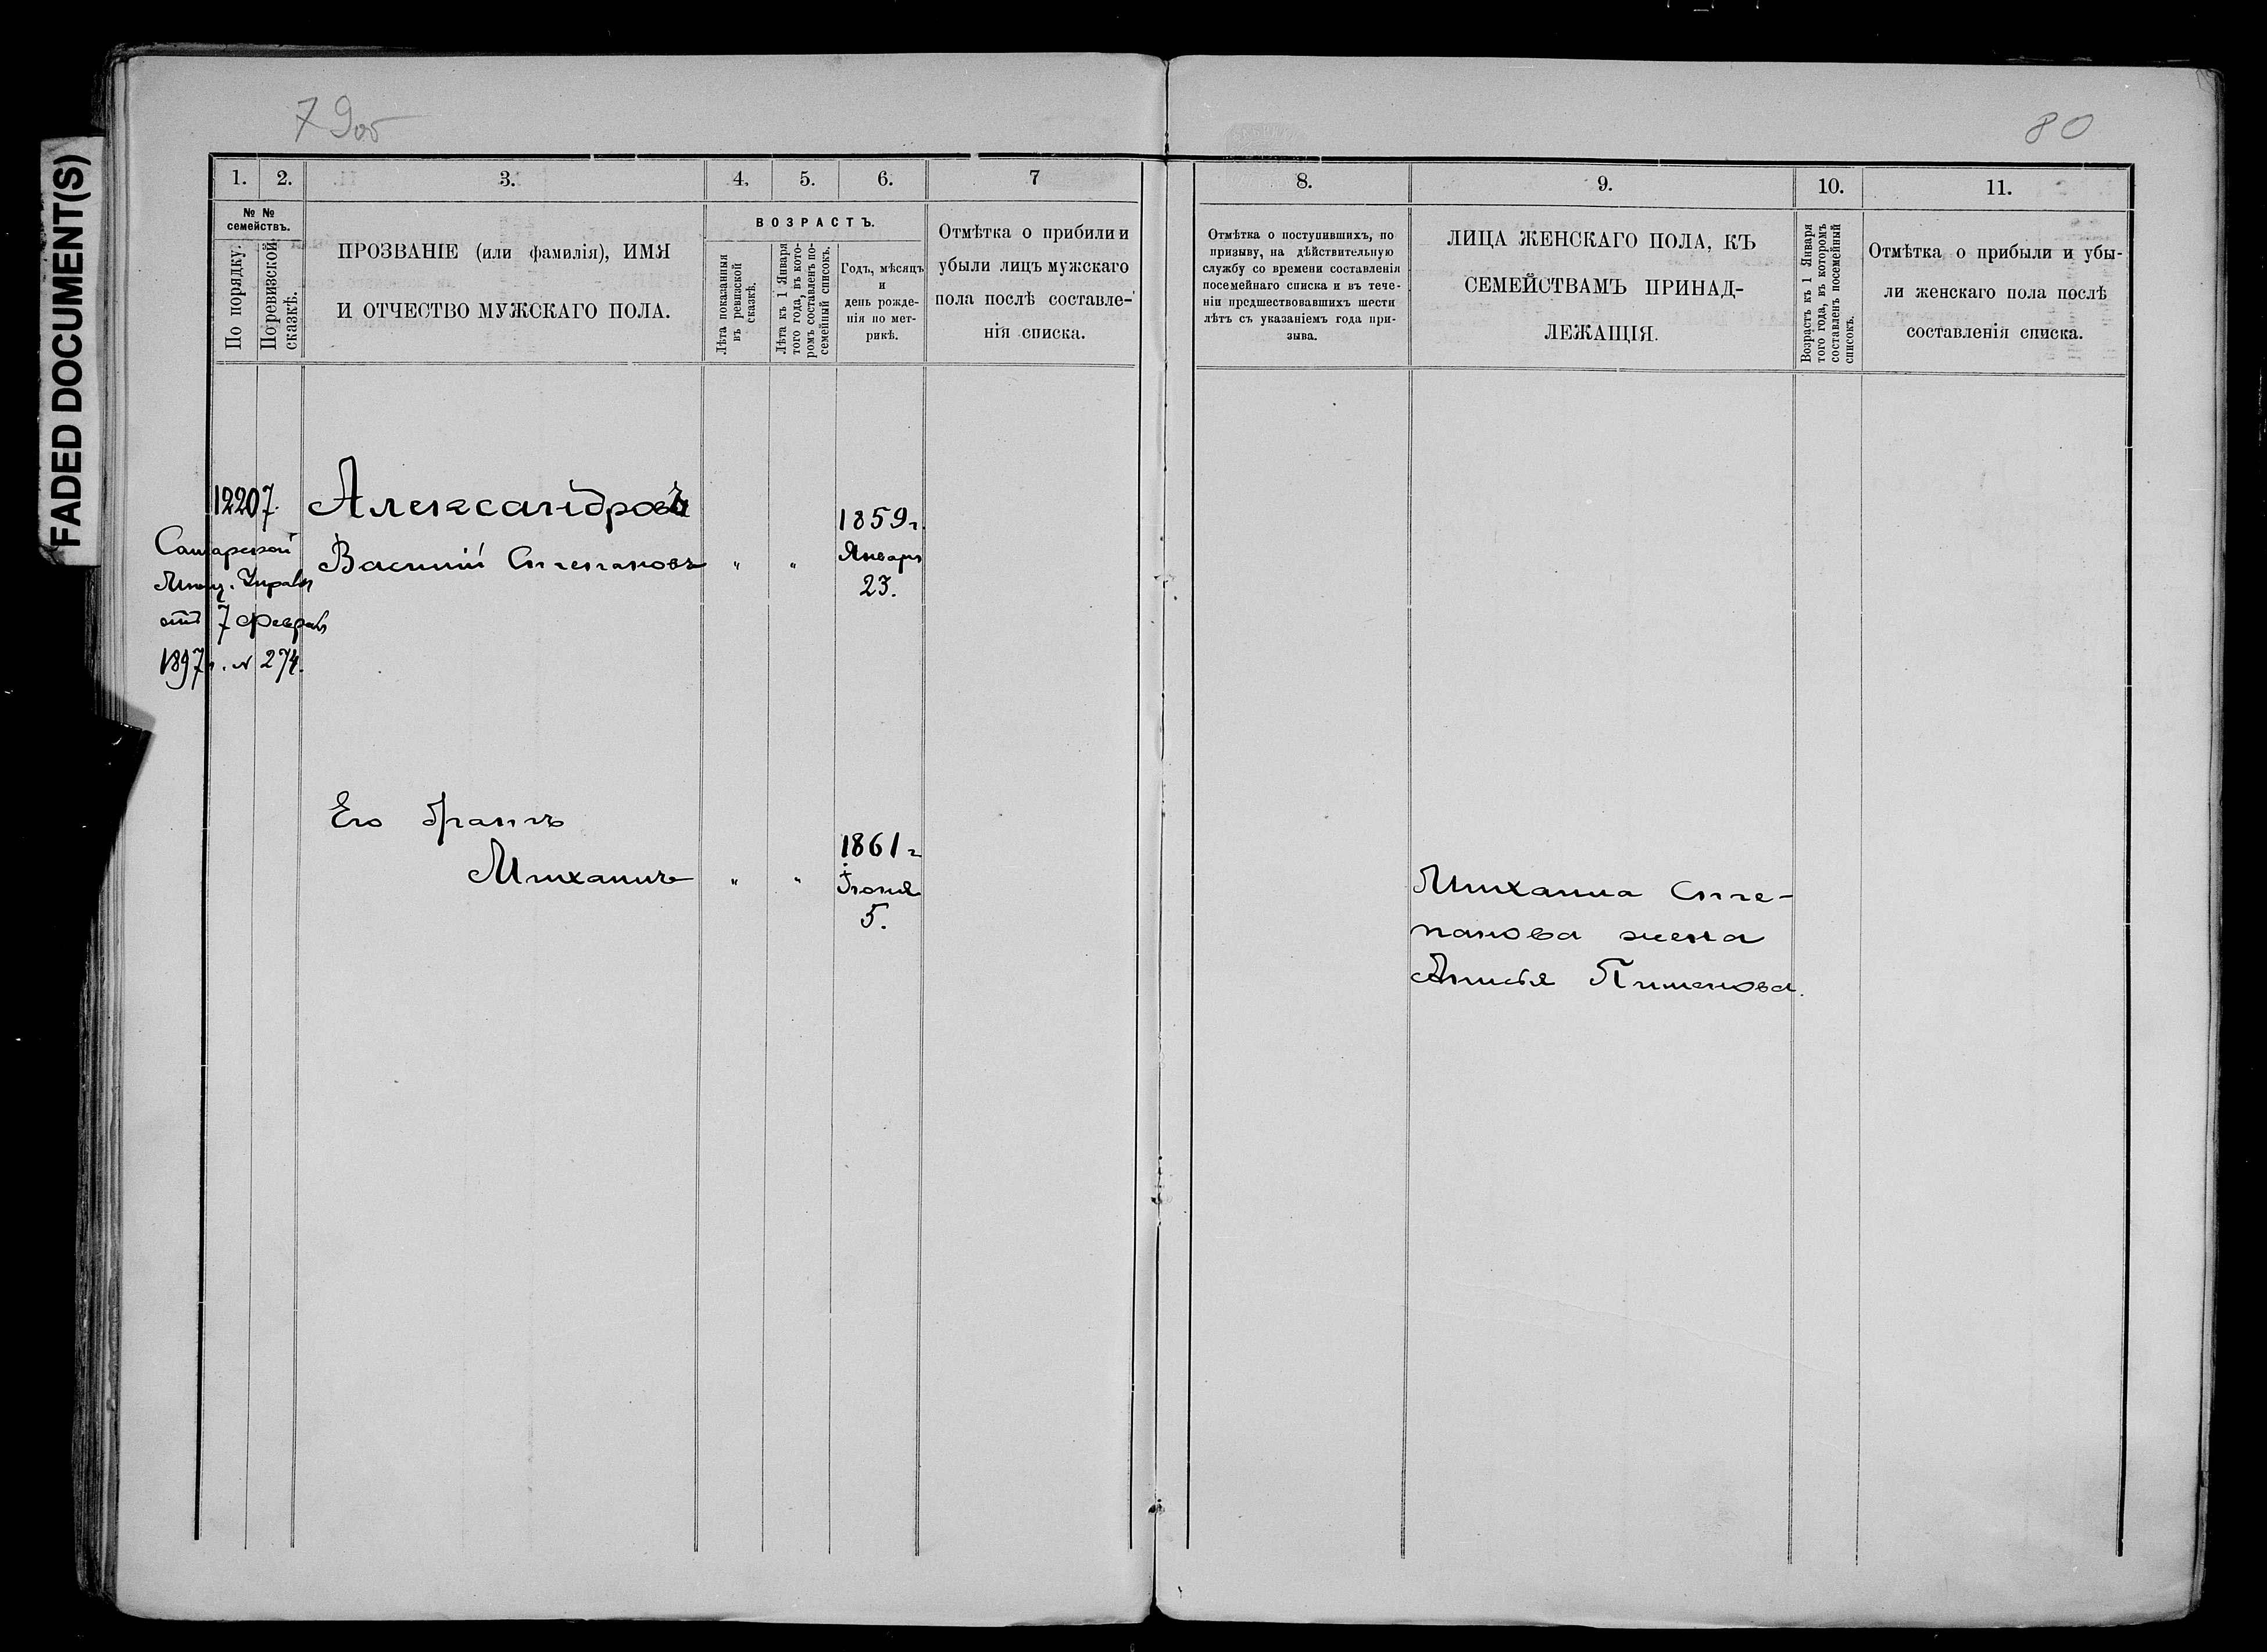 FADED DOCUMENT(S)
79об
80
1.
2.
3.
4.
5.
6.
7
№ №
семействъ.
По порядку.
По ревизской
сказкѣ.
ПРОЗВАНІЕ (или фамилія), ИМЯ
И ОТЧЕСТВО МУЖСКАГО ПОЛА.
ВОЗРАСТЪ.
Лѣта показанныя
въ ревизской
сказкѣ.
Лѣта къ 1 Января
того года, въ кото-
ромъ составленъ по-
семейный списокъ.
Годъ, мѣсяцъ
и
день рожде-
нія по мет-
рикѣ.
Отмѣтка о прибили и
убыли лицъ мужскаго
пола послѣ составле-
нія списка.
8.
9.
10.
11.
Отмѣтка о поступившихъ, по
призыву, на дѣйствительную
службу со времени составленія
посемейнаго списка и въ тече-
ніи предшествовавшихъ шести
лѣтъ съ указаніемъ года при-
зыва.
ЛИЦА ЖЕНСКАГО ПОЛА, КЪ
СЕМЕЙСТВАМЪ ПРИНАД-
ЛЕЖАЩІЯ.
Возрастъ къ 1 Января
того года, въ которомъ
составленъ посемейный
списокъ.
Отмѣтка о прибыли и убы-
ли женскаго пола послѣ
составленія списка.
12207.
Самарской
Мѣщ. Управы
отъ 7 февраля
1897 г. № 274.
Александровъ
Василій Степановъ " "
1859 г.
Января
23.
Его братъ
Михаилъ " "
1861 г
Іюня
5.
Михаила Сте-
панова жена
Анисья Пименова.